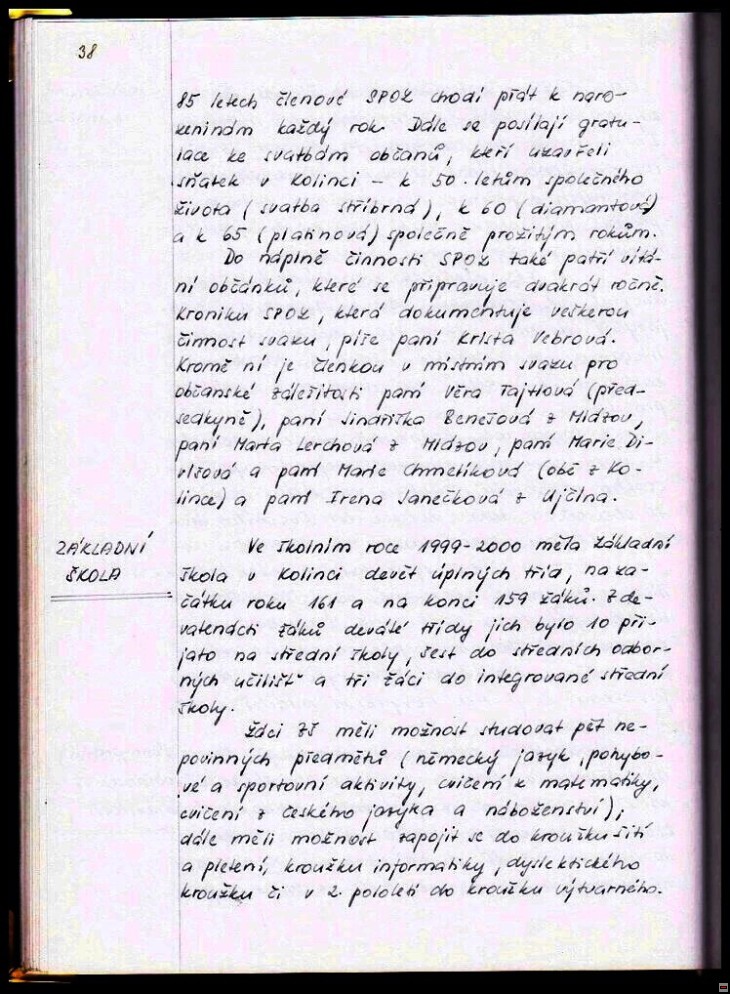 38
85 letech členové SPOZ chodí přát k naro-
zeninám každý rok. Dále se posílají gratu-
lace ke svatbám občanů, kteří uzavřeli
sňatek v Kolinci - k 50. letům společného
života (svatba stříbrná), k 60 (diamantová)
a k 65 (platinová) společně prožitým rokům.
Do náplně činnosti SPOZ také patří vítá-
ní občánků, které se připravuje dvakrát ročně.
Kroniku SPOZ, která dokumentuje veškerou
činnost svazu, píše paní Krista Vebrová.
Kromě ní je členkou v místním svazu pro
občanské záležitosti paní Věra Tajtlová (před-
sedkyně), paní Jindřiška Benešová z Mlázov,
paní Marta Lerchová z Mlázov, paní Marie Di-
višová a paní Marie Chmelíková (obě z Ko-
lince) a paní Irena Janečková z Ujčína.
ZÁKLADNÍ
ŠKOLA
Ve školním roce 1999-2000 měla Základní
škola v Kolinci devět úplných tříd, na za-
čátku roku 161 a na konci 159 žáků. Z de-
vatenácti žáků deváté třídy jich bylo 10 při-
jato na střední školy, šest do středních odbor-
ných učilišť a tři žáci do integrované střední
školy.
Žáci ZŠ měli možnost studovat pět ne-
povinných předmětů (německý jazyk, pohybo-
vé a sportovní aktivity, cvičení z matematiky,
cvičení z českého jazyka a náboženství);
dále měli možnost zapojit se do kroužku šití
a pletení, kroužku informatiky, dyslektického
kroužku či v 2. pololetí do kroužku výtvarného.